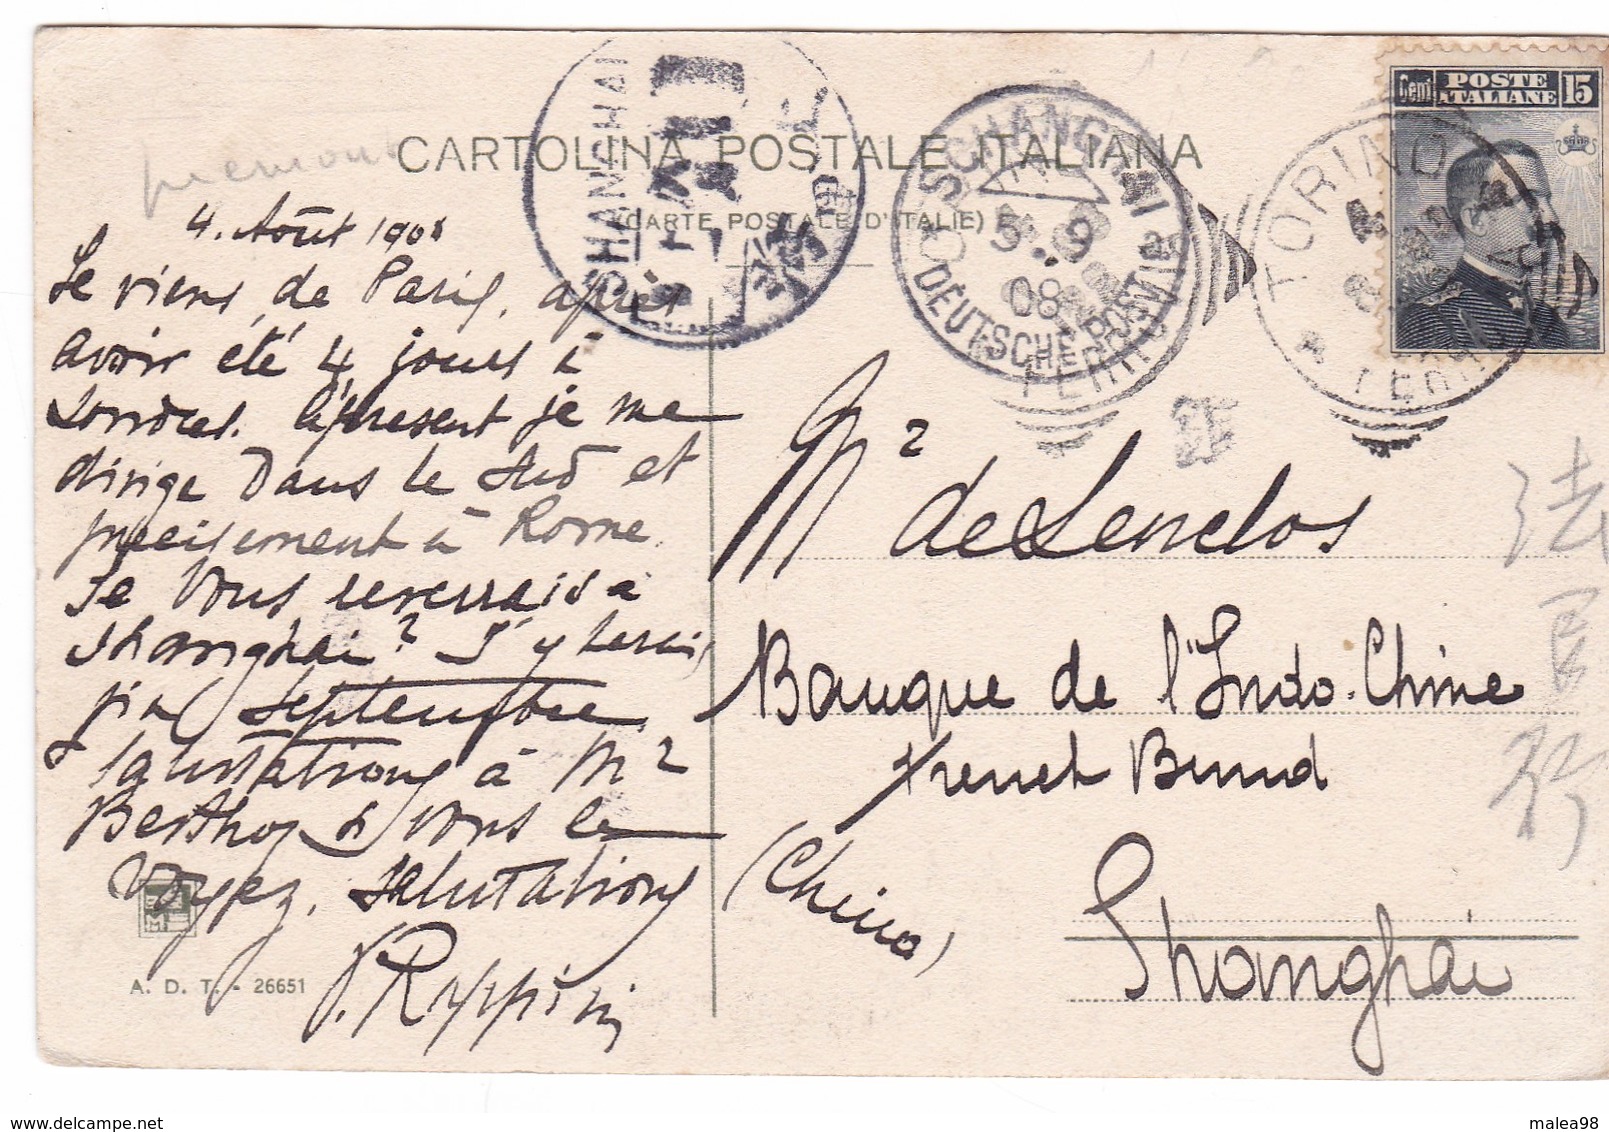 CARTOLINA POSTALE ITALIANA
(CARTE POSTALE D'ITALIE)
POSTE ITALIANE
Cent 15
TORINO
FERROVIA
SHANGHAI
SCHANGHAI
5 9
08
DEUTSCHE POST
TORINO
FERROVIA
piemont
4. Août 1908
Je viens de Paris, après
avoir été 4 jours à
Londres. àpresent je me
dirige Dans le Sud et
precisement à Rome.
Je vous reverrais à
Shanghai? J'y serai
fin Septembre
Salutations à Mr
Berthoz si vous le
Voyez, Salutations
A. D. T. - 26651
Mr de Lenclos
Banque de l'Indo-Chine
French Bund
(China)
Shanghai
法
malea98